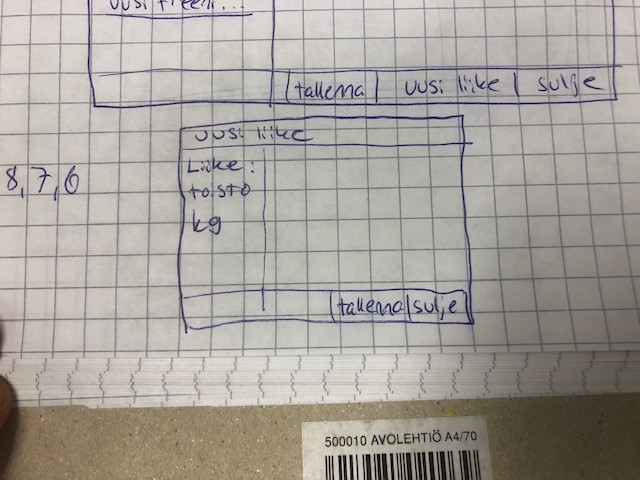 uusi treeni...
tallenna uusi liike sulje
uusi liike
Liike:
toisto
8,7,6
kg
tallenna sulje
500010 AVOLEHTIÖ A4/70